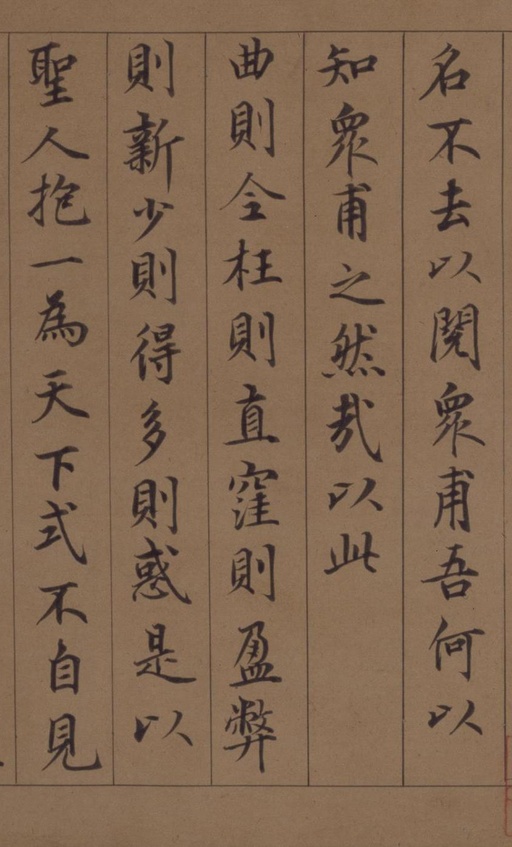 名不去以閱衆甫吾何以
知衆甫之然哉以此
曲則全枉則直窪則盈弊
則新少則得多則惑是以
聖人抱一為天下式不自見